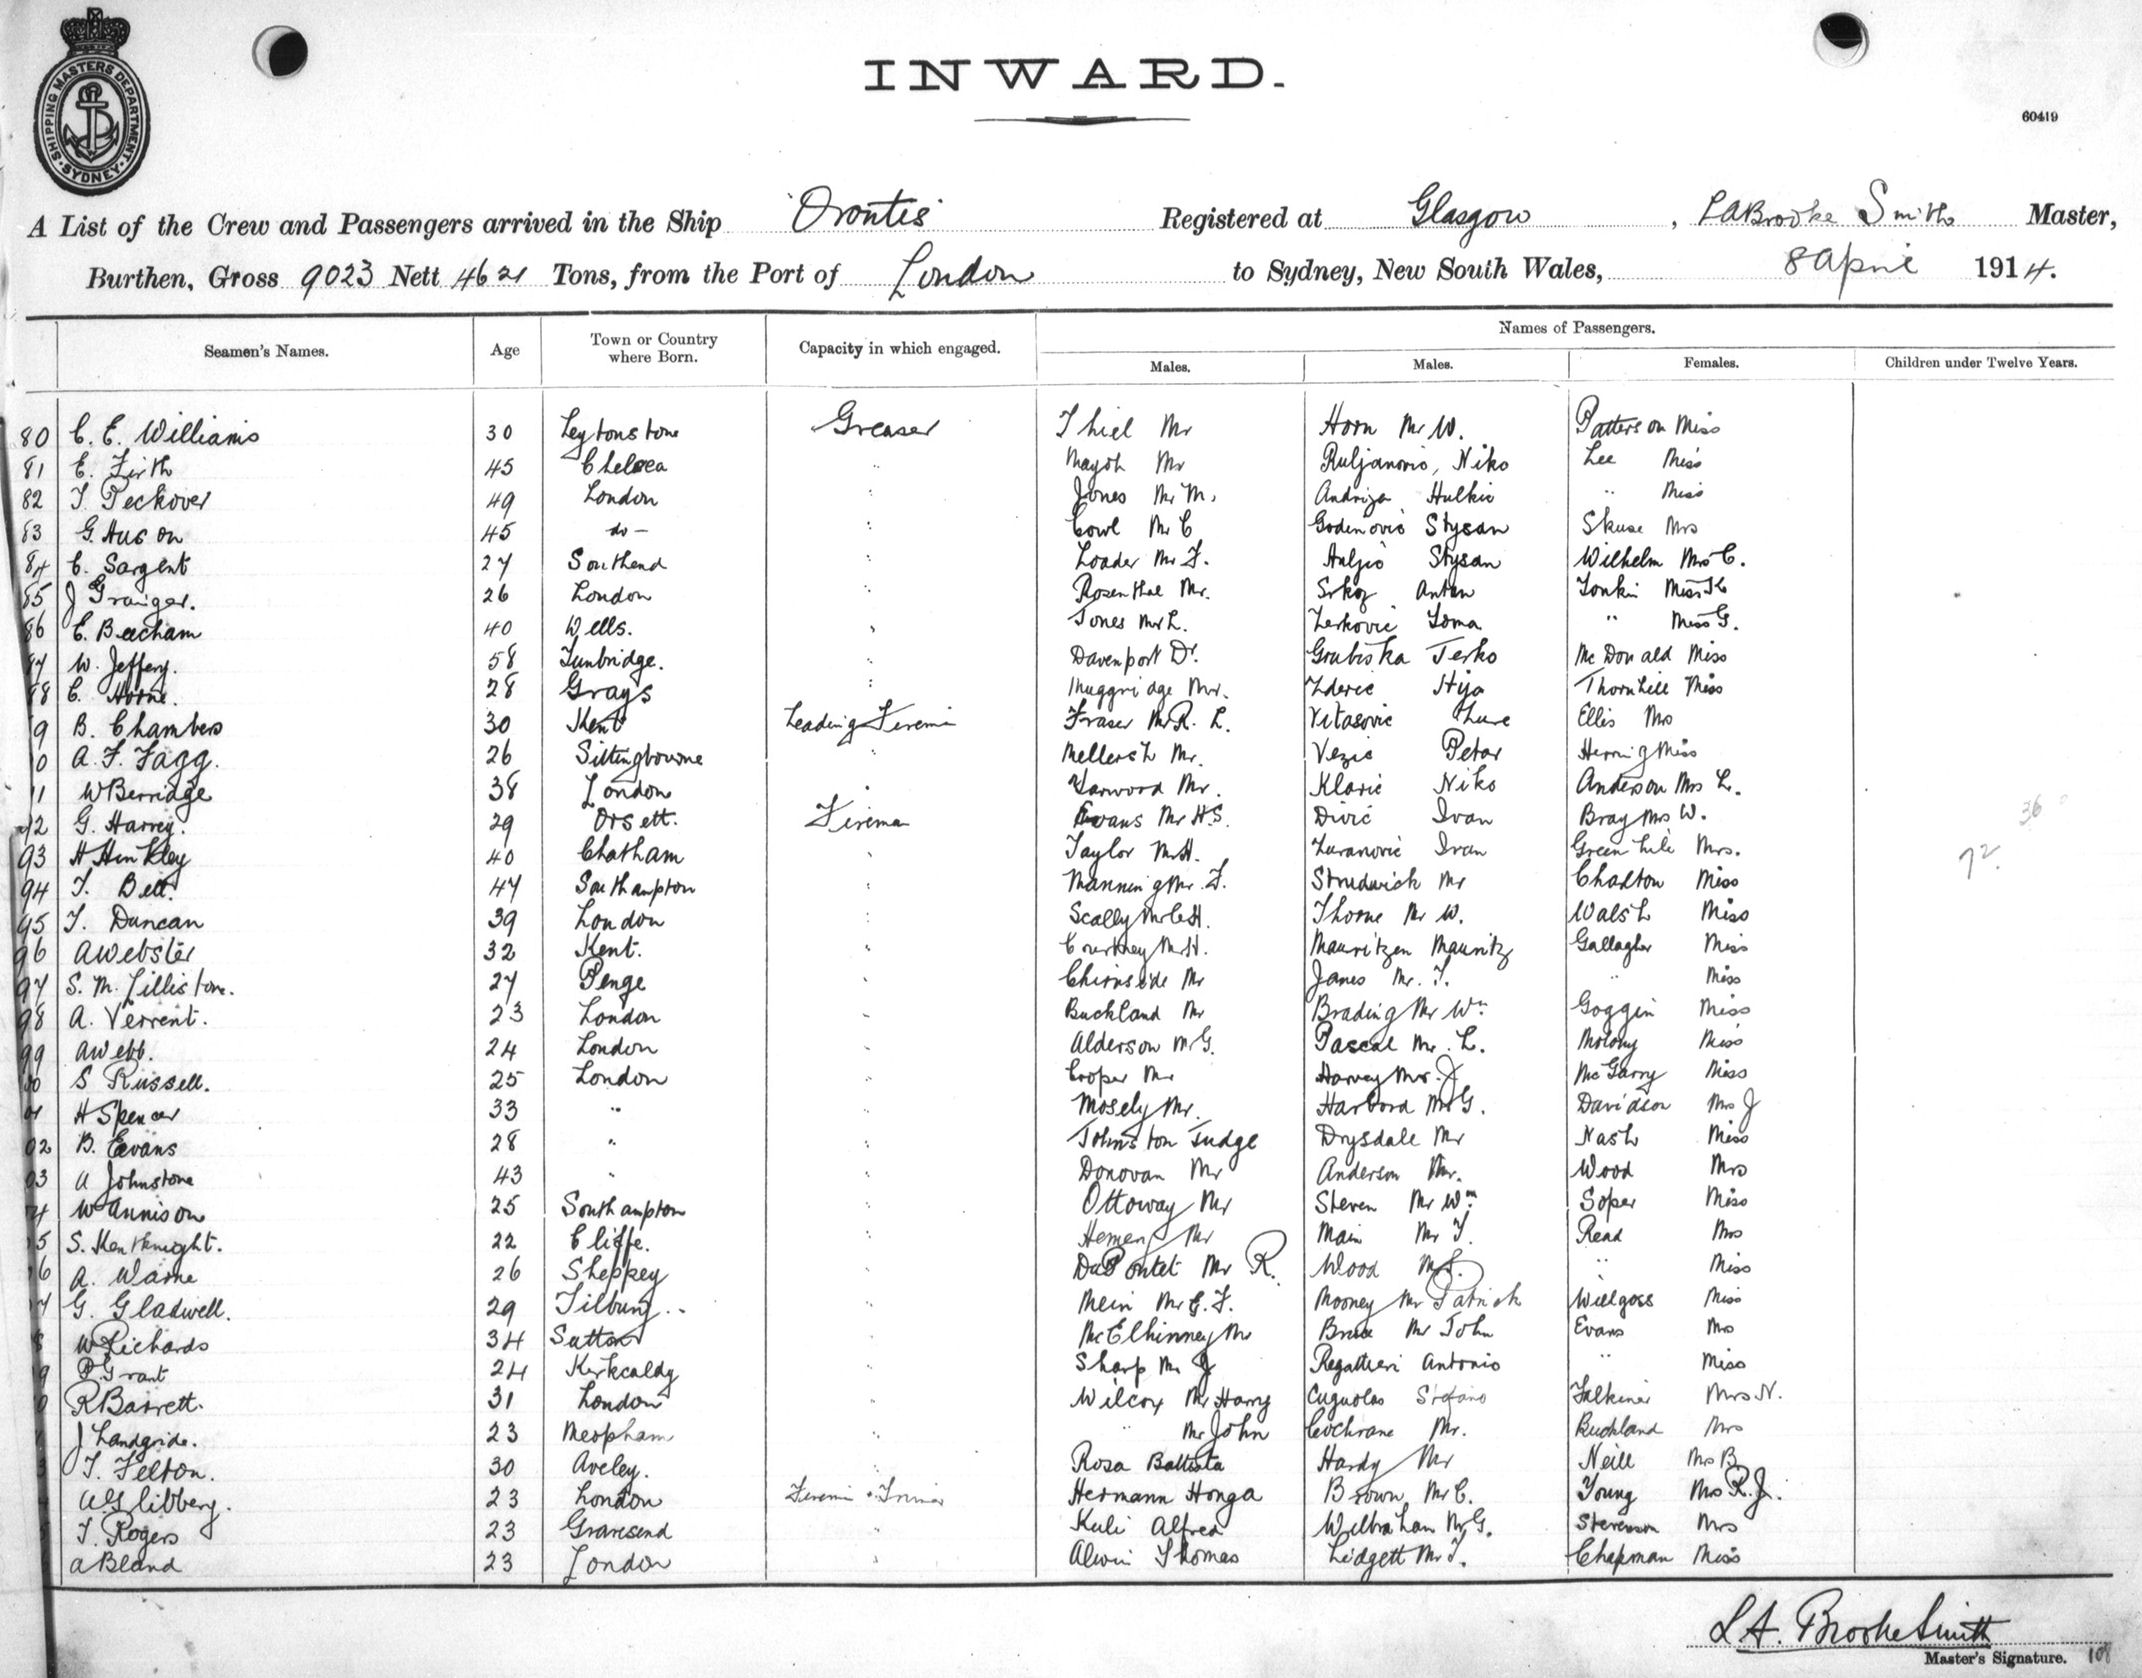 SHIPPING MASTERS DEPARTMENT · SYDNEY ·
INWARD.
60419
A List of the Crew and Passengers arrived in the Ship "Orontes" Registered at Glasgow, L A Brooke Smith Master,
Burthen, Gross 9023 Nett 4621 Tons, from the Port of London to Sydney, New South Wales, 8 April 1914.
Seamen's Names. Age Town or Country where Born. Capacity in which engaged. Names of Passengers.
Males. Males. Females. Children under Twelve Years.
80 C. E. Williams 30 Leytonstone Greaser Thiel Mr Horn Mr W. Patterson Miss
81 E. Firth 45 Chelsea " Mayoh Mr Ruljanovic, Niko Lee Miss
82 T. Peckover 49 London " Jones Mr M. Andrija Hulkic " Miss
83 G. Huson 45 do " Cowl Mr C Godinovic Stysan Skuse Mrs
84 C. Sargent 27 Southend " Loader Mr F. Stysan Wilhelm Mrs C.
85 J Granger. 26 London " Rosenthal Mr. Anton Tonkin Miss
86 E. Beecham 40 Wells. " Jones Mr L. Zerkovic Toma " Miss G.
87 W. Jeffery. 58 Tunbridge. " Davenport Dr. Grubiska Jerko McDonald Miss
88 C. Horne. 28 Grays " Muggridge Mr. Zderic Thornhill Miss
9 B. Chambers 30 Kent Leading Firemn Fraser Mr R. L. Vitasovic Lure Ellis Mrs
0 A. F. Fagg. 26 Sittingbourne " Mellersh Mr. Vezic Petar Herring Miss
11 W Berridge 38 London " Yarwood Mr. Klaric Niko Anderson Mrs L.
92 G. Harvey. 29 Orsett. Fireman Evans Mr H.S. Divic Ivan Bray Mrs W. 36
93 H Hinkley 40 Chatham " Taylor Mr H. Zuranovic Ivan Greenhile Mrs. 72
94 T. Bett. 47 Southampton " Manning Mr. F. Strudwick Mr Charlton Miss
95 T. Duncan 39 London " Scally Mr C.H. Thorne Mr W. Walsh Miss
96 A Webster 32 Kent. " Courtney Mr H. Mauritzen Mauritz Gallagher Miss
97 S. M. Lillistone. 27 Penge " Chirnside Mr Janes Mr. T. " Miss
98 A. Verrent. 23 London " Buckland Mr Brading Mr Wm Goggin Miss
99 A Webb. 24 London " Alderson Mr G. Pascal Mr. L. Molony Miss
00 S Russell. 25 London " Cooper Mr Harvey Mr. J McGarry Miss
01 H Spencer 33 " " Mosely Mr. Harbord Mr G. Davidson Mrs J
02 B. Evans 28 " " Johnston Judge Drysdale Mr Nash Miss
03 A Johnstone 43 " " Donovan Mr Anderson Mr. Wood Mrs
4 W Annison 25 Southampton " Ottoway Mr Steven Mr Wm Soper Miss
5 S. Kentknight. 22 Cliffe. " Hemeng Mr Main Mr T. Read Mrs
6 A. Warne 26 Sheppey " DuPontet Mr R. Wood Mr " Miss
7 G. Gladwell. 29 Tilbury " Mein Mr G. F. Mooney Mr Patrick Willgoss Miss
8 W Richards 34 Sutton " McElhinney Mr Bruce Mr John Evans Mrs
9 P Grant 24 Kirkcaldy " Sharp Mr J Regattieri Antonio " Miss
0 R Barrett. 31 London " Wilcox Mr Harry Cuguolas Stefano Falkiner Mrs N.
J Landgride. 23 Meopham " " Mr John Cochrane Mr. Buckland Mrs
3 T. Felton. 30 Aveley. " Rosa Battista Hardy Mr Neill Mrs B
A Glibbery. 23 London Firemn & Trimmer Hermann Honga Brown Mr C. Young Mrs R. J.
T. Rogers 23 Gravesend " Kuli Alfred Wilbraham Mr G. Stevenson Mrs
A Bland 23 London " Alwin Thomas Lidgett Mr T. Chapman Miss
L. A. Brooke Smith
Master's Signature. 108